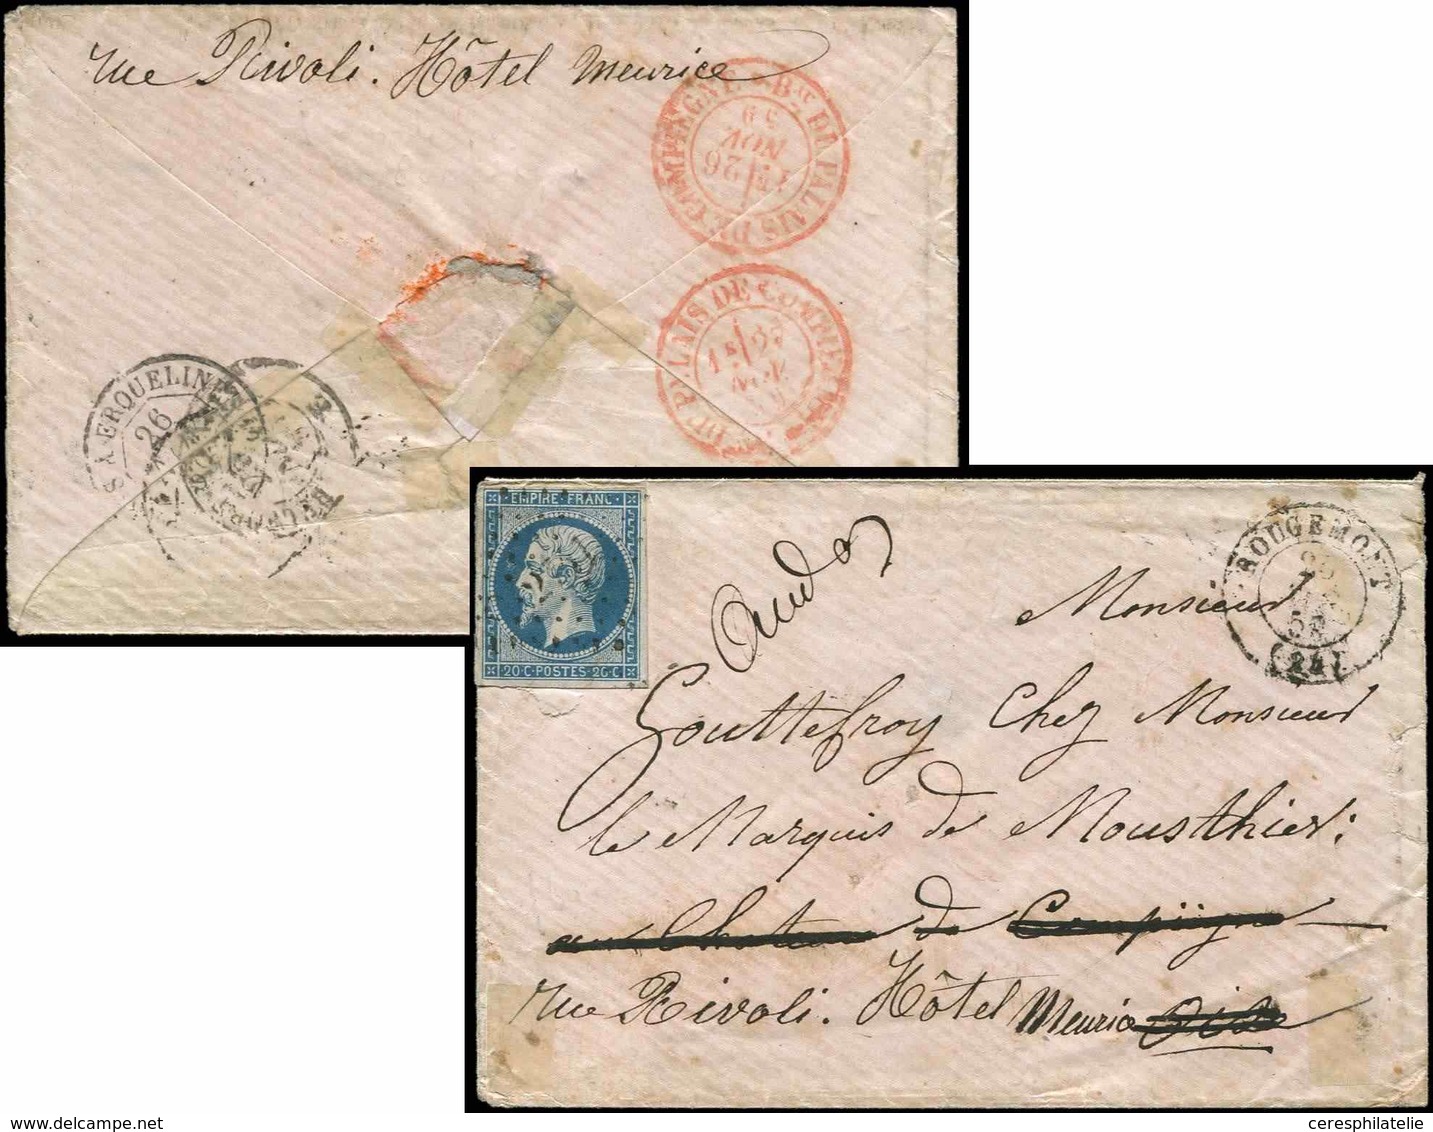 rue Rivoli. Hôtel Meurice
Bau DU PALAIS DE COMPIEGNE
26
NOV
59
DU PALAIS DE COMPIEGNE
1e 27
NOV
ERQUELINE
26
EMPIRE · FRANC ·
20 · C · POSTES · 20 · C
ROUGEMONT
(24)
Monsieur
Gouttefroy chez Monsieur
le Marquis de Mousthier:
au Chateau de Compiègne
rue Rivoli. Hôtel Meurice Oise
www.delcampe.net
ceresphilatelie